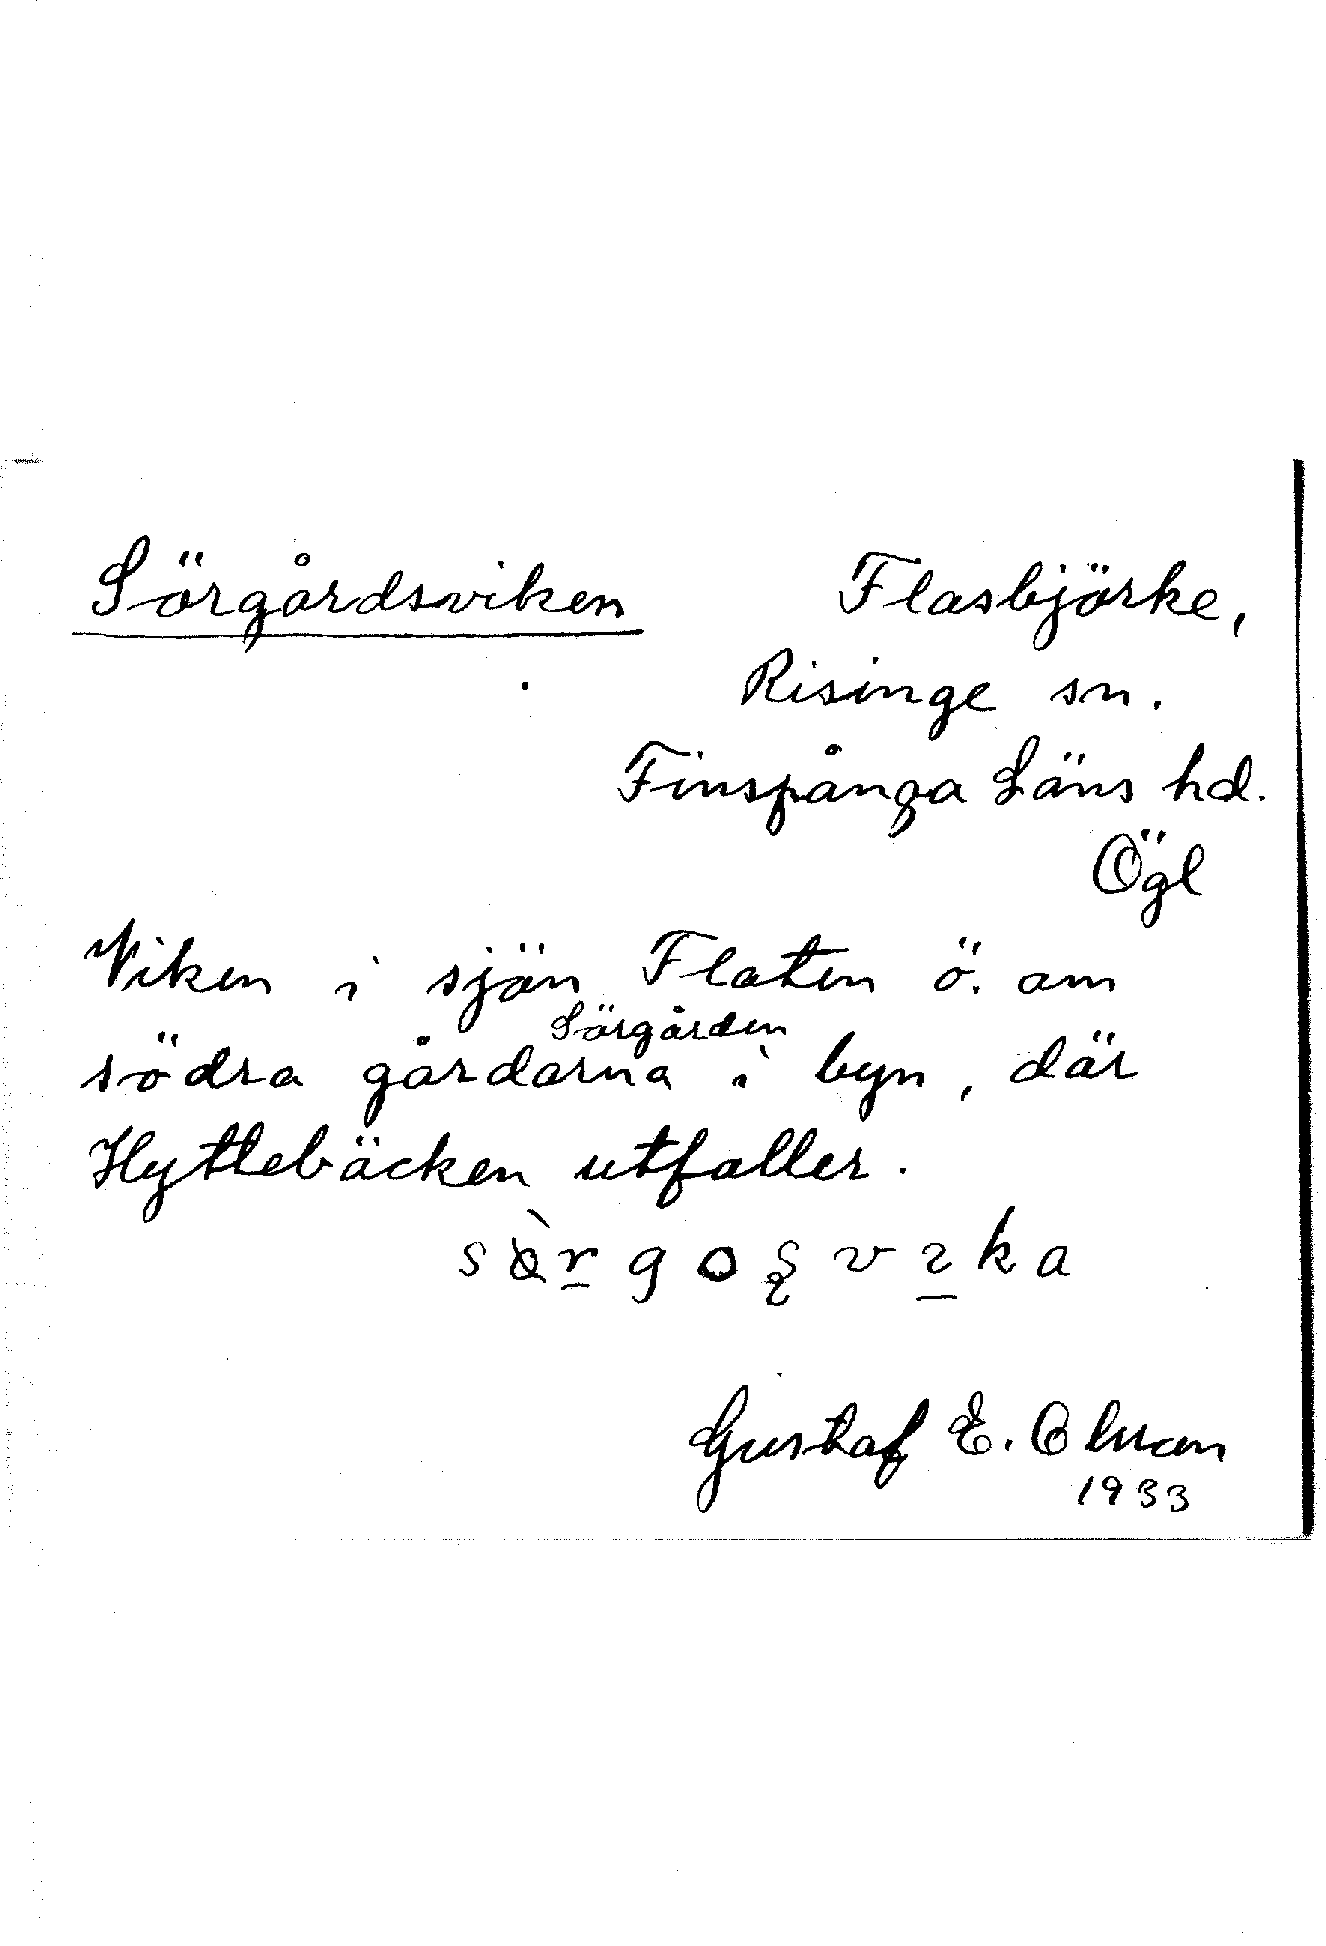 Sörgårdsviken Flasbjörke,
Risinge sn.
Finspånga Läns hd.
Ögl
Viken i sjön Flaten ö. om
Sörgården
södra gårdarna i byn, där
Hyttebäcken utfaller.
Gustaf E.
1933